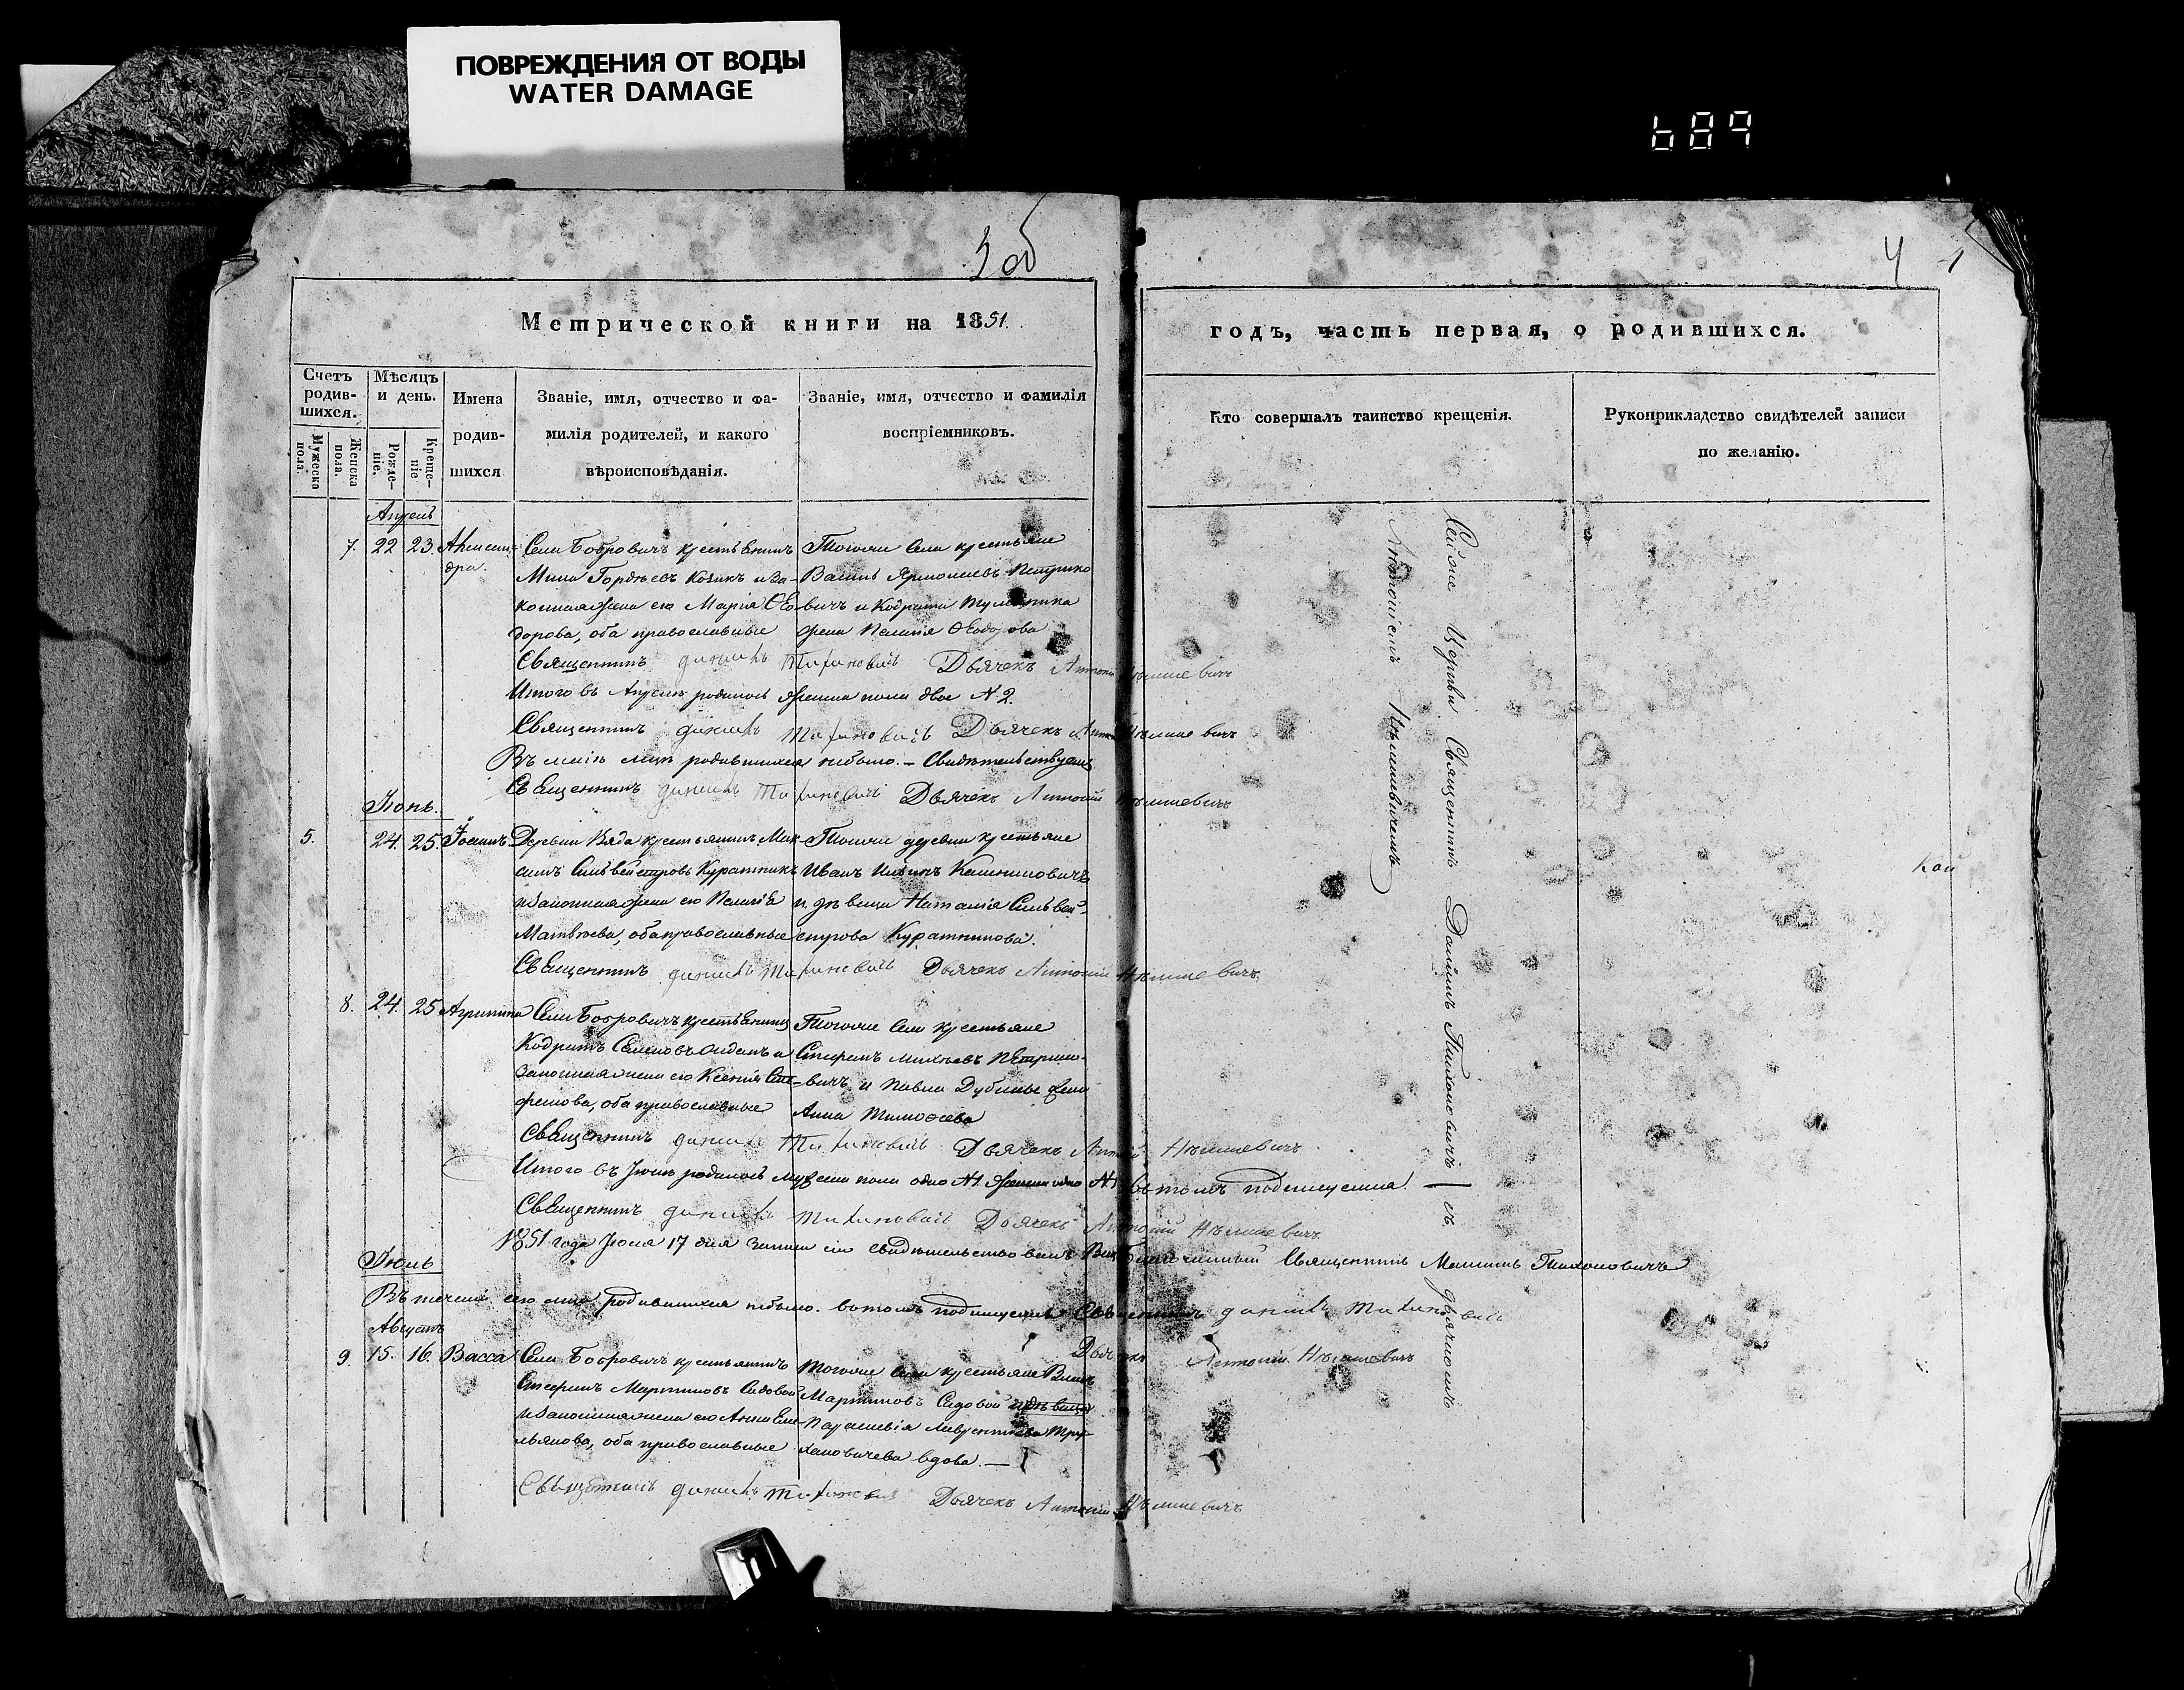 ПОВРЕЖДЕНИЯ ОТ ВОДЫ
WATER DAMAGE
689
3 об
4
Метрической книги на 1851.
годъ, часть первая, о родившихся.
Счетъ родившихся.
Мужеска пола.
Женска пола.
Мѣсяцъ и день.
Рожденіе.
Крещеніе
Имена родившихся
Званіе, имя, отчество и фамилія родителей, и какого вѣроисповѣданія.
Званіе, имя, отчество и фамилія воспріемниковъ.
Кто совершалъ таинство крещенія.
Рукоприкладство свидѣтелей записи по желанію.
Апрель
7. 22 23.
Села Бобровичъ крестьянинъ
Мина Гордѣевъ Козикъ и за-
конная жена его Марія Ѳео-
дорова, оба православные
Тогоже села крестьяне
Василь Ярмолаевъ Петрико-
вичъ и Кодрата
жена Пелагія Ѳеодорова
Священникъ Данилъ Тихоновичъ Дьячекъ Антоній Нѣмшевичъ
Итого въ Апрелѣ родилось женска пола двое № 2.
Священникъ Данилъ Тихоновичъ Дьячекъ Антоній Нѣмшевичъ
Въ маіи родившихся небыло. – Свидѣтельствуемъ
Священникъ Данилъ Тихоновичъ Дьячекъ Антоній Нѣмшевичъ
Іюнь.
5. 24. 25. Іоаннъ
Деревни Вяда крестьянинъ Мак-
симъ Сильвестровъ Куратникъ
и законная жена его Пелагія
Матвѣева, оба православные
Тогоже деревни крестьяне
Иванъ Ильинъ Калиновичъ
и дѣвица Наталія Сильве-
строва Куратникова.
Священникъ Данилъ Тихоновичъ Дьячекъ Антоній Нѣмшевичъ
8. 24. 25 Агрипина
Села Бобровичъ крестьянинъ
Кодратъ Семеновъ и
законная жена его Ксенія Сте-
фанова, оба православные
Тогоже села крестьяне
Стефанъ Михеевъ Петрико-
вичъ и Павла жена
Анна Тимоѳеева
Священникъ Данилъ Тихоновичъ Дьячекъ Антоній Нѣмшевичъ
Итого въ Іюнь родилось мужеска пола одно №1. женска одно №1 вътомъ подпишемся.
Священникъ Данилъ Тихоновичъ Дьячекъ Антоній Нѣмшевичъ
1851 года Іюля 17 дня записи сіи свидѣтельствовалъ Благочинный Священникъ Тихоновичъ
Іюль
Въ теченіи сего родившихся небыло. вътомъ подпишемся Священникъ Данилъ Тихоновичъ
Дьячекъ Антоній Нѣмшевичъ
Августъ
9. 15. 16. Васса
Села Бобровичъ крестьянинъ
Стефанъ Мартиновъ Садовой
и законная жена его Анна Еме-
льянова, оба православные
Тогоже села крестьяне
Мартиновъ Садовой
Параскевія Лаврентіева
вдова. —
Священникъ Данилъ Тихоновичъ Дьячекъ Антоній Нѣмшевичъ
Сейже Церкви Священникъ Данилъ Тихоновичъ съ дьячкомъ
Антоніемъ Нѣмшевичемъ